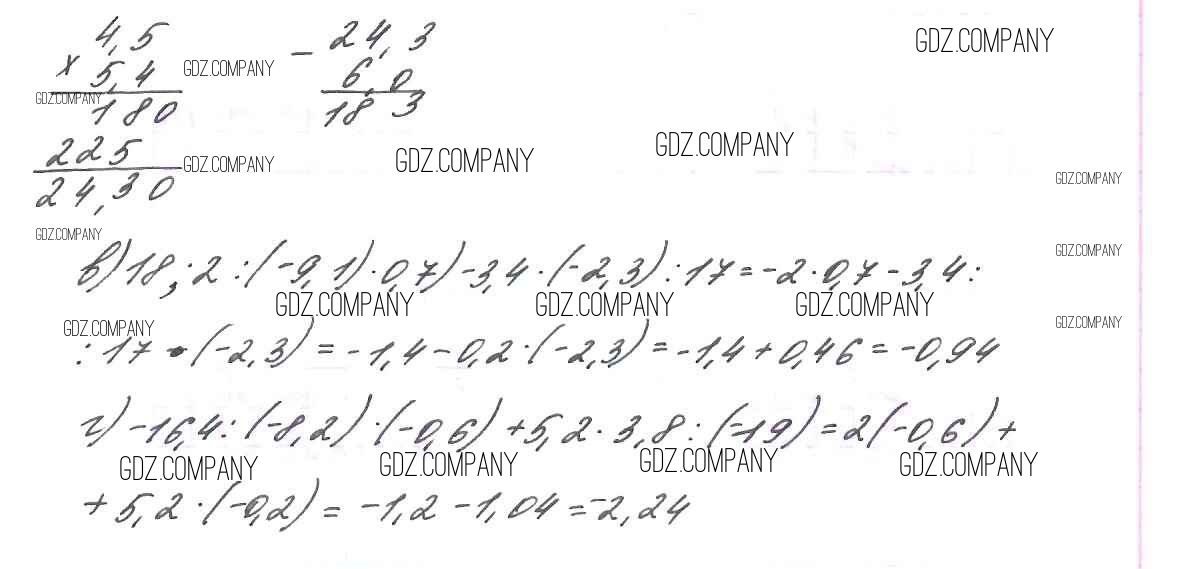 4,5
× 5,4
180
225
24,30
− 24,3
6,0
18 3
GDZ.COMPANY
GDZ.COMPANY
GDZ.COMPANY
GDZ.COMPANY
GDZ.COMPANY
GDZ.COMPANY
GDZ.COMPANY
GDZ.COMPANY
в) 18,2 : (-9,1) · 0,7) - 3,4 · (-2,3) : 17 = -2 · 0,7 - 3,4 :
GDZ.COMPANY
GDZ.COMPANY GDZ.COMPANY GDZ.COMPANY
GDZ.COMPANY
GDZ.COMPANY
: 17 · (-2,3) = -1,4 - 0,2 · (-2,3) = -1,4 + 0,46 = -0,94
г) -16,4 : (-8,2) · (-0,6) + 5,2 · 3,8 : (-19) = 2(-0,6) +
GDZ.COMPANY GDZ.COMPANY GDZ.COMPANY GDZ.COMPANY
+ 5,2 · (-0,2) = -1,2 - 1,04 = -2,24